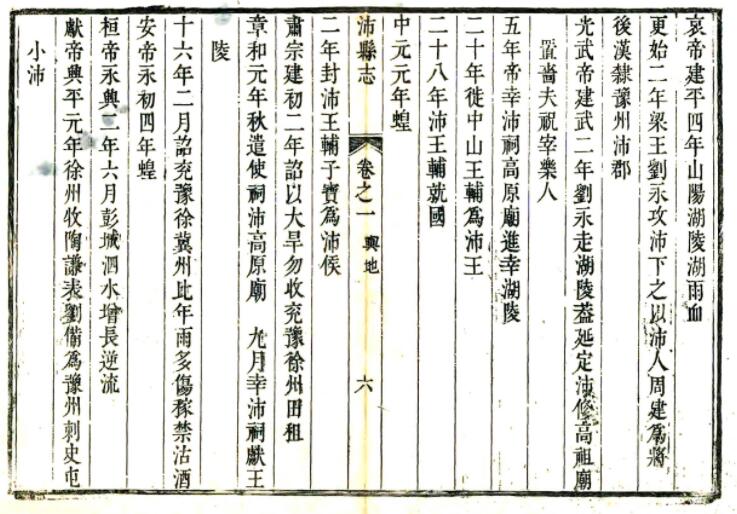 哀帝建平四年山陽湖陵湖雨血
更始二年梁王劉永攻沛下之以沛人周建爲將
後漢隸豫州沛郡
光武帝建武二年劉永走湖陵葢延定沛修高祖廟
置嗇夫祝宰樂人
五年帝幸沛祠高原廟進幸湖陵
二十年徙中山王輔爲沛王
二十八年沛王輔就國
中元元年蝗
沛縣志 卷之一 輿地 六
二年封沛王輔子寶爲沛侯
肅宗建初二年詔以大旱勿收兖豫徐州田租
章和元年秋遣使祠沛高原廟 九月幸沛祠獻王
陵
十六年二月詔兖豫徐冀州比年雨多傷稼禁沽酒
安帝永初四年蝗
桓帝永興二年六月彭城泗水增長逆流
獻帝興平元年徐州牧陶謙表劉備爲豫州刺史屯
小沛